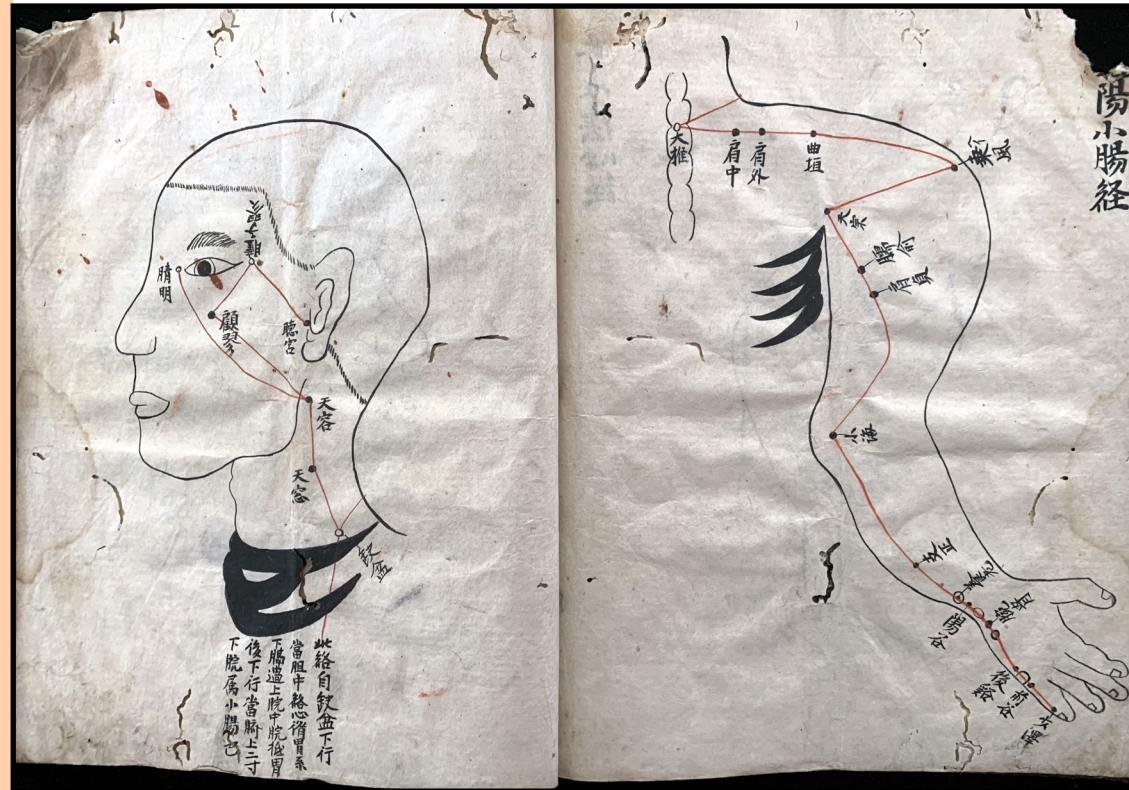 陽小腸経
大推
肩中
肩外
曲垣
秉風
天宗
臑俞
肩貞
小海
支正
養老
陽谷
腕骨
後谿
前谷
少澤
瞳子髎
睛明
顴髎
聴宮
天容
天窓
缺盆
此絡自缺盆下行
當膻中絡心循胃系
下膈過上脘中脘抵胃
後下行當臍上二寸
下脘属小腸已